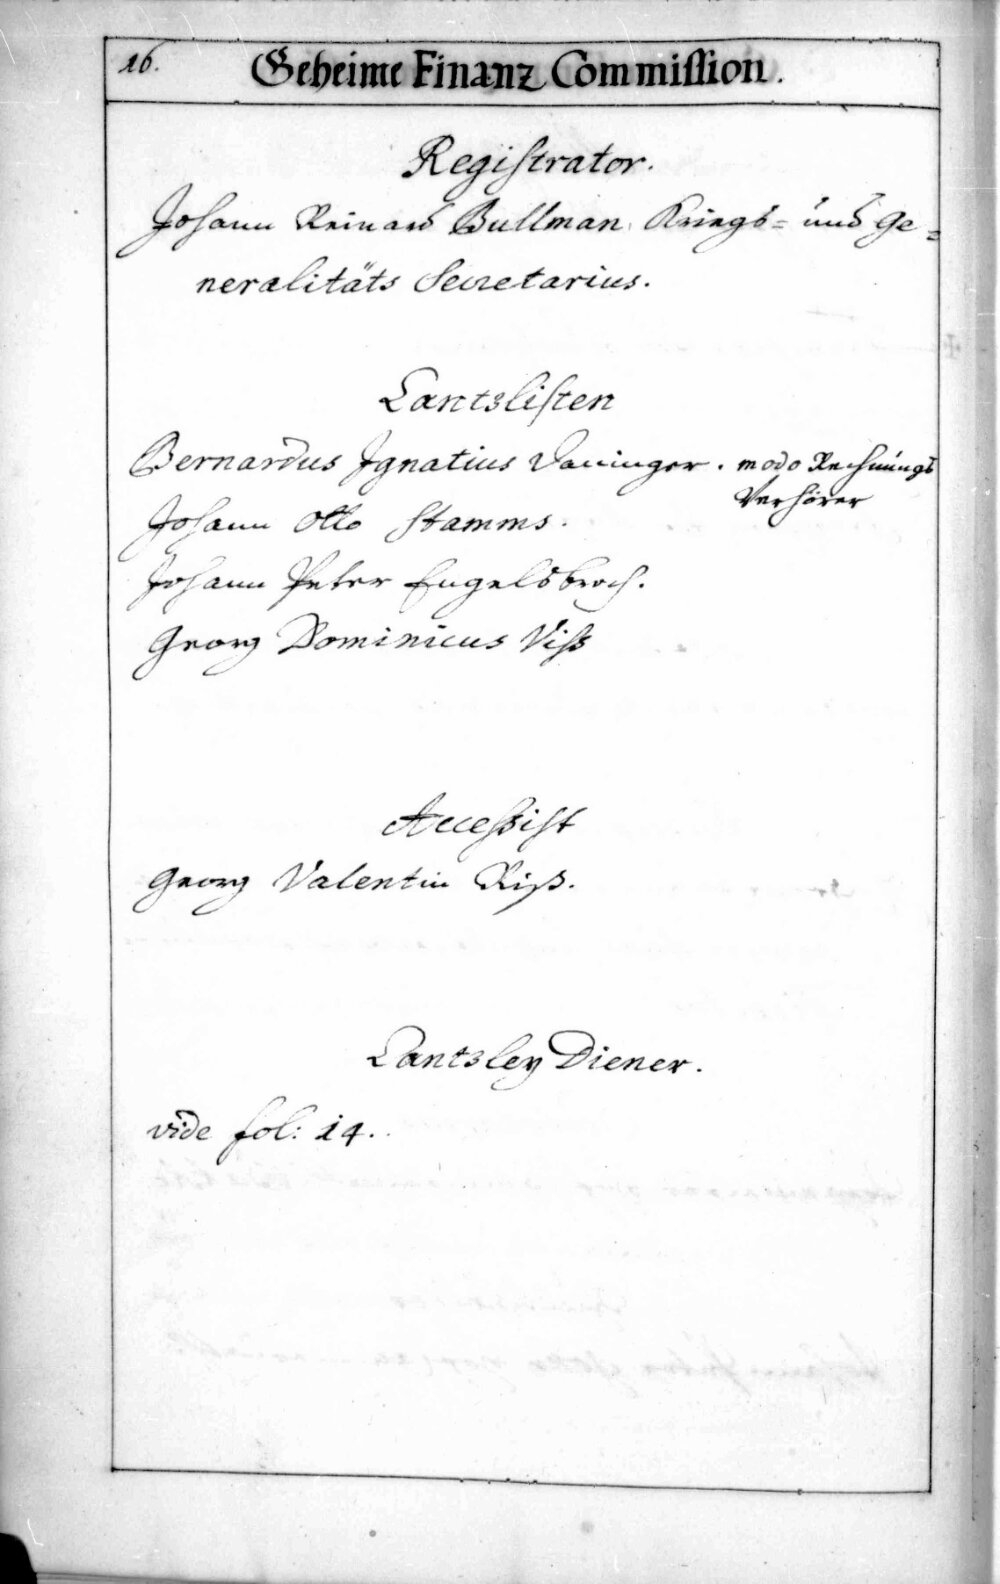 16.
Geheime Finanz Commission.
Registrator.
Johann Reinard Bullman Kriegs= und Ge=
neralitäts Secretarius.
Cantzlisten
Bernardus Ignatius . modo Rechnungs
Verhörer
Johann Otto Stamms.
Johann Peter Engelsbroch.
Georg Dominicus Viß
Accessist
Georg Valentin Riß.
Cantzley Diener.
vide fol: 14.